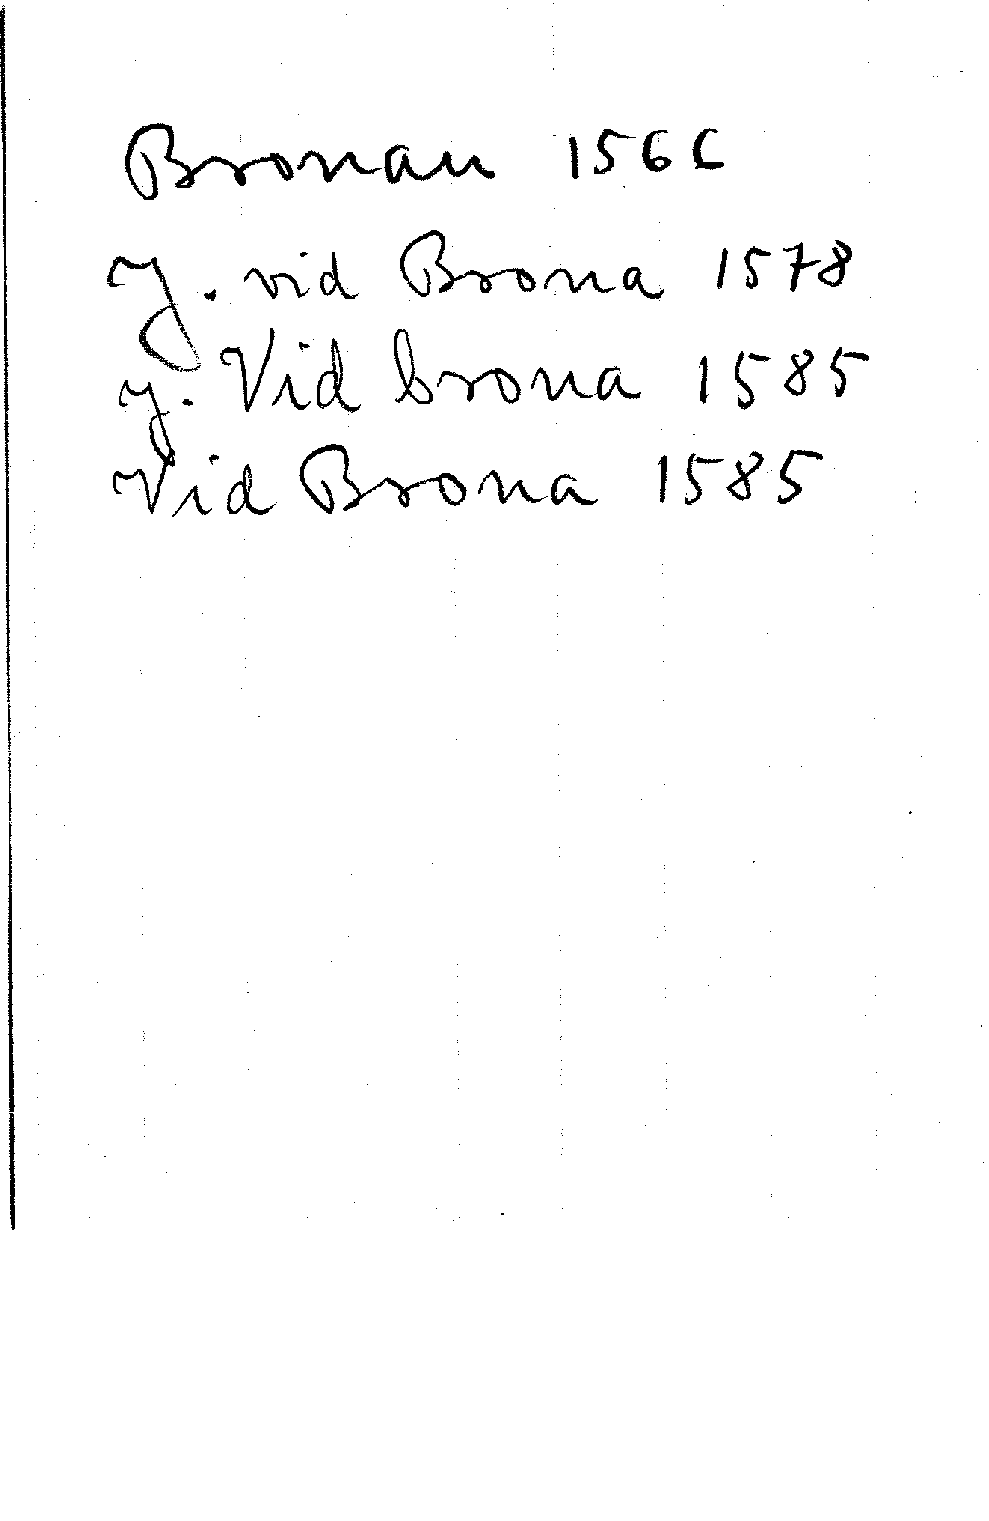 Bronan 1566
J. vid Brona 1578
y. Vid brona 1585
Vid Brona 1585